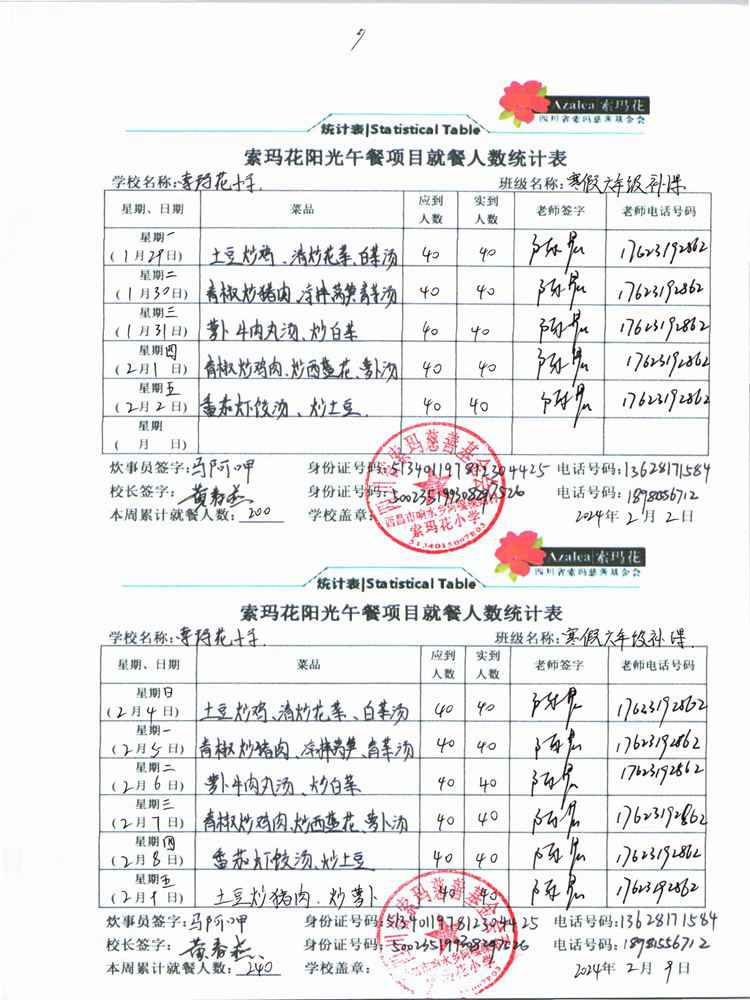 Azalea 索玛花
四川省索玛慈善基金会
统计表|Statistical Table
索玛花阳光午餐项目就餐人数统计表
学校名称:索玛花小学 班级名称:寒假六年级补课
星期、日期 菜品 应到人数 实到人数 老师签字 老师电话号码
星期一
(1月29日) 土豆炒鸡、清炒花菜、白菜汤 40 40 17623192862
星期二
(1月30日) 青椒炒猪肉、凉拌莴笋、青菜汤 40 40 17623192862
星期三
(1月31日) 萝卜牛肉丸汤、炒白菜 40 40 17623192862
星期四
(2月1日) 青椒炒鸡肉、炒西蓝花、萝卜汤 40 40 17623192862
星期五
(2月2日) 番茄水饺汤、炒土豆. 40 40 17623192862
星期
( 月 日)
炊事员签字:马阿呷 身份证号码:513401197812304425 电话号码:13628171584
校长签字: 身份证号码:500235199308297526 电话号码:18980556712
本周累计就餐人数:200 学校盖章: 2024年2月2日
四川省索玛慈善基金会
索玛花小学
5134015007803
Azalea 索玛花
四川省索玛慈善基金会
统计表|Statistical Table
索玛花阳光午餐项目就餐人数统计表
学校名称:索玛花小学 班级名称:寒假六年级补课
星期、日期 菜品 应到人数 实到人数 老师签字 老师电话号码
星期日
(2月4日) 土豆炒鸡、清炒花菜、白菜汤 40 40 17623192862
星期一
(2月5日) 青椒炒猪肉、凉拌莴笋、青菜汤 40 40 17623192862
星期二
(2月6日) 萝卜牛肉丸汤、炒白菜 40 40 17623192862
星期三
(2月7日) 青椒炒鸡肉、炒西蓝花、萝卜汤 40 40 17623192862
星期四
(2月8日) 番茄水饺汤、炒土豆 40 40 17623192862
星期五
(2月9日) 土豆炒猪肉、炒萝卜 40 40 17623192862
炊事员签字:马阿呷 身份证号码:513401197812304425 电话号码:13628171584
校长签字: 身份证号码:500235199308297526 电话号码:18980556712
本周累计就餐人数:240 学校盖章: 2024年2月9日
四川省索玛慈善基金会
索玛花小学